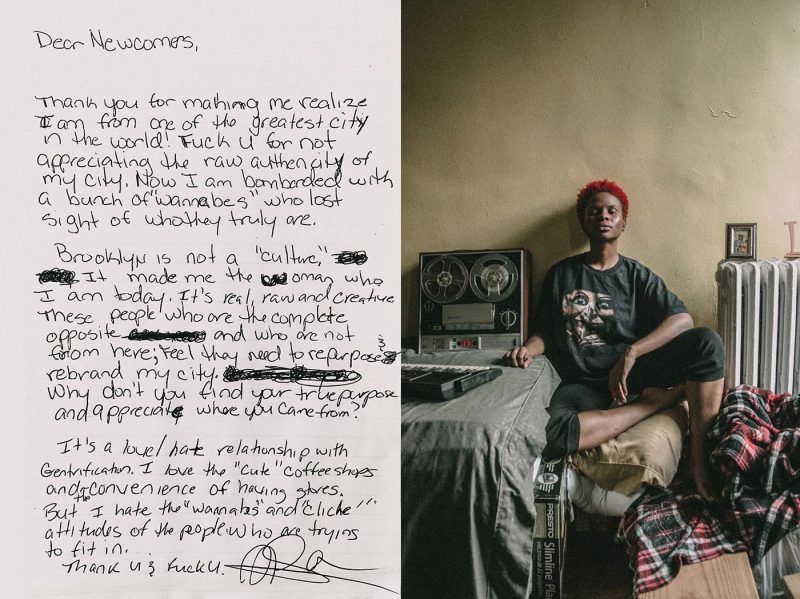 Dear Newcomers,
Thank you for making me realize
I am from one of the greatest city
in the world! Fuck U for not
appreciating the raw authencity of
my city. Now I am bombarded with
a bunch of "wannabes" who lost
sight of who they truly are.
Brooklyn is not a "culture,"
It made me the woman who
I am today. It's real, raw and creative
These people who are the complete
opposite and who are not
from here; feel they need to repurpose &
rebrand my city.
Why don't you find your true purpose
and appreciate where you came from?
It's a love/hate relationship with
Gentrification. I love the "cute" coffee shops
and the convenience of having stores.
But I hate the "wannabes" and "cliche"
attitudes of the people who are trying
to fit in.
Thank U & Fuck U.
PRESTO
Slimline